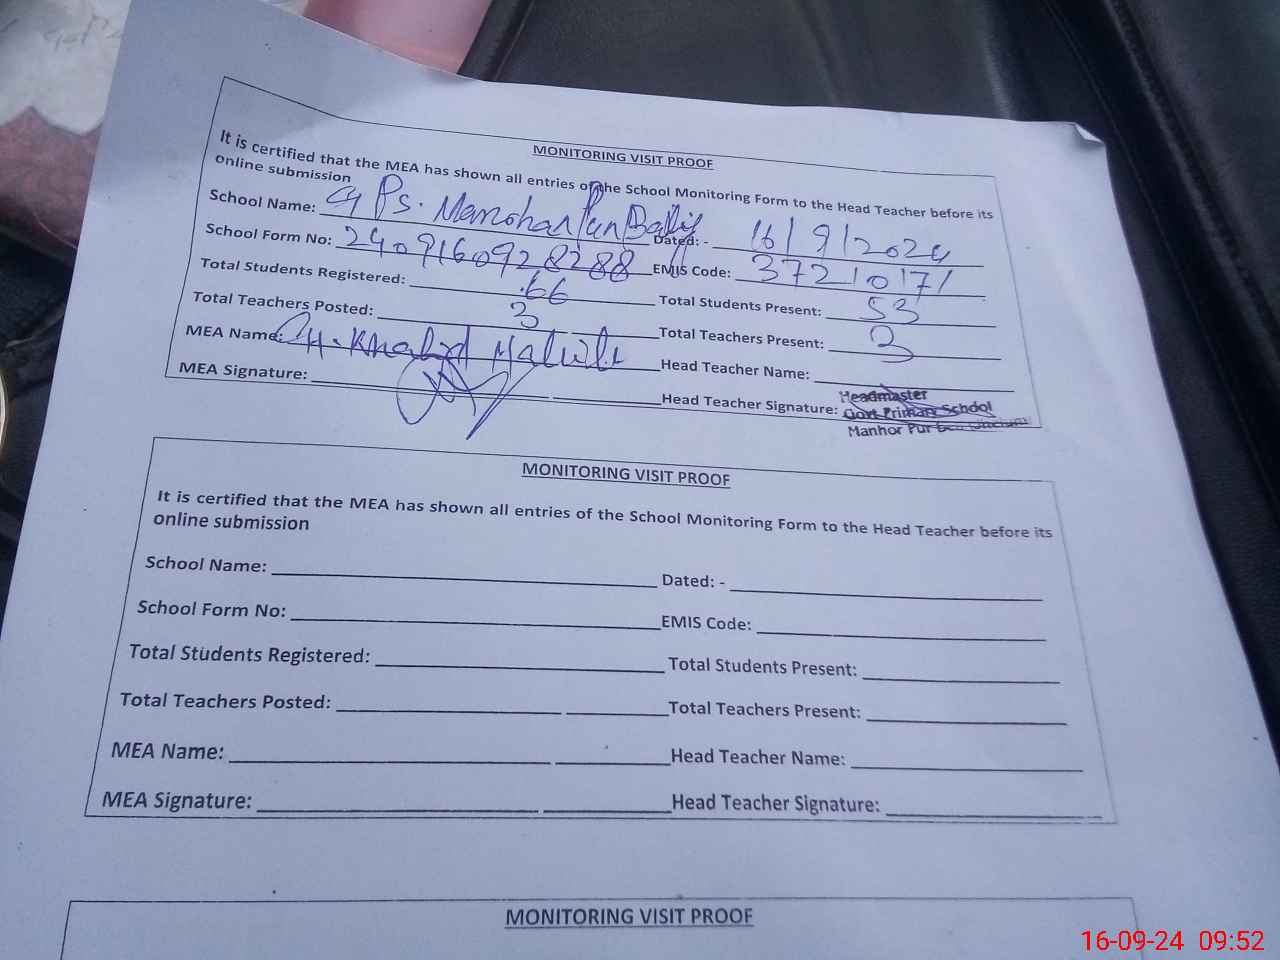 MONITORING VISIT PROOF
It is certified that the MEA has shown all entries of the School Monitoring Form to the Head Teacher before its
online submission
School Name: GPS. Manohar Pur Dated: - 16/9/2024
School Form No: 2409160928288 EMIS Code: 37210171
Total Students Registered: 66 Total Students Present: 53
Total Teachers Posted: 3 Total Teachers Present: 3
MEA Name: CH. Khalid Head Teacher Name:
MEA Signature: Head Teacher Signature:
Headmaster
Govt Primary School
Manhor Pur
MONITORING VISIT PROOF
It is certified that the MEA has shown all entries of the School Monitoring Form to the Head Teacher before its
online submission
School Name: Dated: -
School Form No: EMIS Code:
Total Students Registered: Total Students Present:
Total Teachers Posted: Total Teachers Present:
MEA Name: Head Teacher Name:
MEA Signature: Head Teacher Signature:
MONITORING VISIT PROOF
16-09-24 09:52